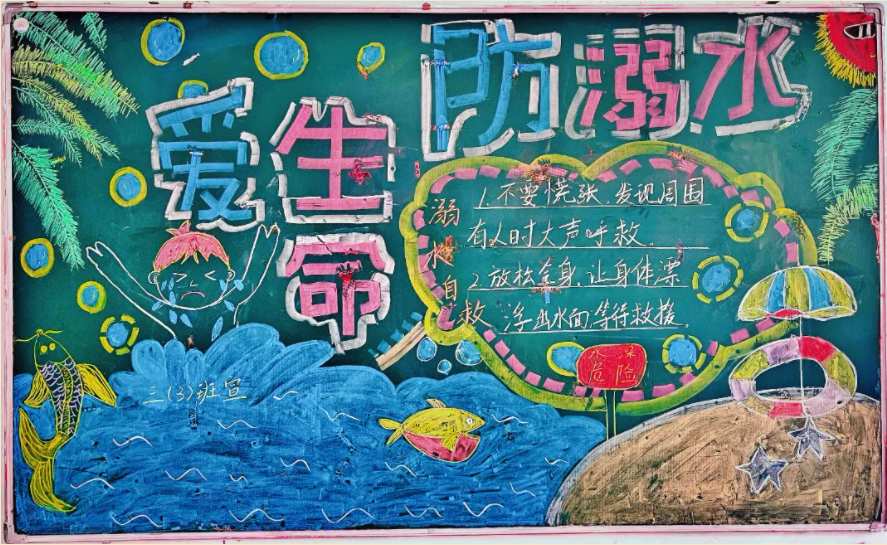 爱生命
防溺水
溺水自救
1.不要慌张.发现周围
有人时大声呼救。
2.放松全身,让身体漂
浮出水面,等待救援。
水深
危险
二(3)班宣